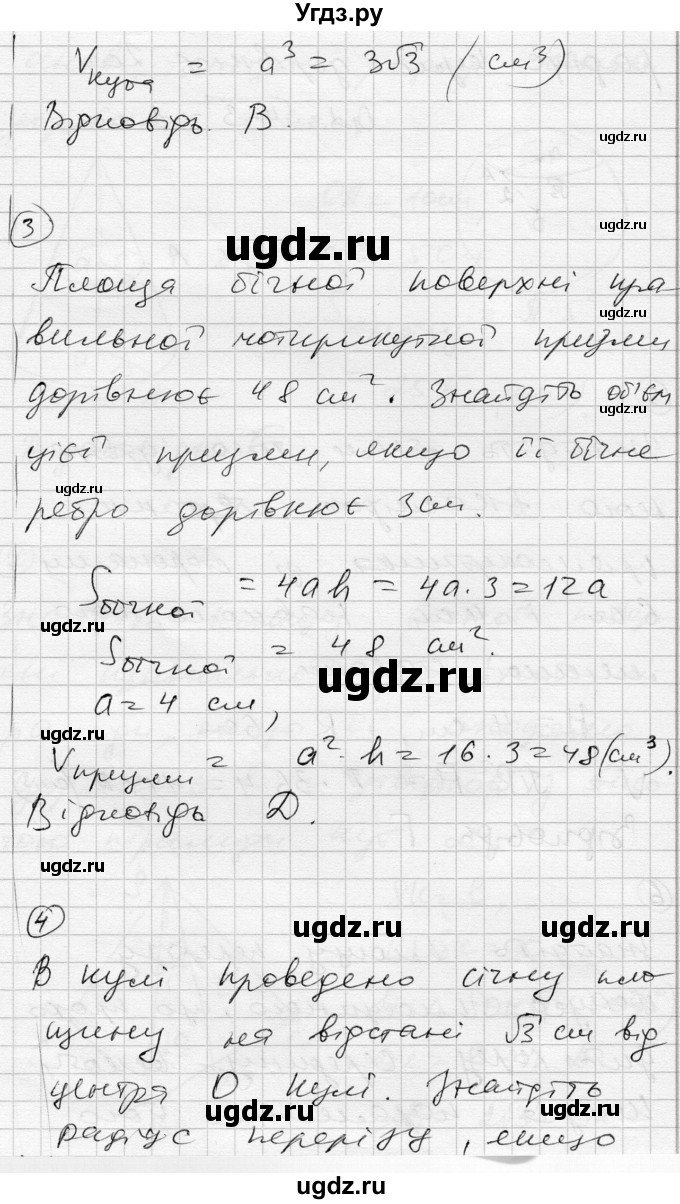 Угдз.ру
V куба = a³ = 3√3 (см³)
Відповідь. В.
ugdz.ru
ugdz.ru
3
ugdz.ru
Площа бічної поверхні пра-
вильної чотирикутної призми
дорівнює 48 см². Знайдіть об'єм
ugdz.ru
цієї призми, якщо її бічне
ugdz.ru
ребро дорівнює 3 см.
S бічної = 4ah = 4a · 3 = 12a
ugdz.ru
ugdz.ru
S бічної = 48 см².
ugdz.ru
a = 4 см,
ugdz.ru
V призми = a² · h = 16 · 3 = 48 (см³).
Відповідь Д.
ugdz.ru
4
ugdz.ru
ugdz.ru
В кулі проведено січну пло-
щину на відстані √3 см від
ugdz.ru
центра О кулі. Знайдіть
ugdz.ru
радіус перерізу, якщо
ugdz.ru